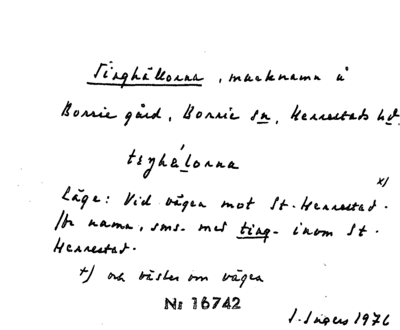 Tinghällorna, marknamn å
Borrie gård, Borrie sn, Herrestads hd.
tɛŋhä́lorna
Läge: Vid vägen mot St. Herrestad. x)
Jfr namn, sms. med ting- inom St.
Herrestad.
x) och väster om vägen
Nr 16742
I. Ingers 1976